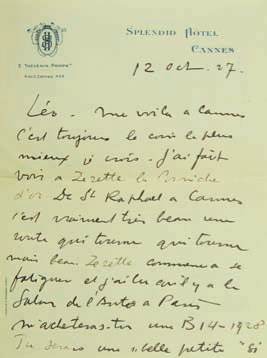 SPLENDID HÔTEL
CANNES
12 Oct. 27.
Léo. me voilà a Cannes
c'est toujours le coin le plus
mieux je crois. j'ai fait
voir a Zezette la Corniche
d'or De St Raphael a Cannes
c'est vraiment très beau une
route qui tourne qui tourne
mais beau Zezette commence a
se fatiguer et j'ai lu qu'il y a le
Salon de l'Auto a Paris
m'acheteras-tu une B14-1928
Tu serais une si belle petite